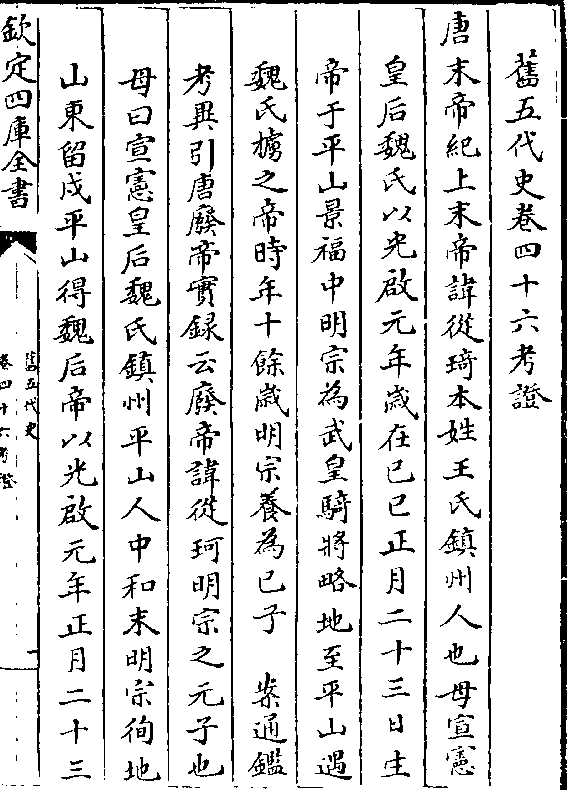 舊五代史卷四十六考證
唐末帝紀上末帝諱從琦本姓王氏鎮州人也母宣憲
皇后魏氏以光啟元年歲在已巳正月二十三日生
帝于平山景福中明宗為武皇騎將略地至平山遇
魏氏擄之帝時年十餘歲明宗養為已子　案通鑑
考異引唐廢帝實録云廢帝諱從珂明宗之元子也
母曰宣憲皇后魏氏鎮州平山人中和末明宗徇地
山東留戍平山得魏后帝以光啟元年正月二十三
欽定四庫全書
舊五代史
卷四十六考證
一